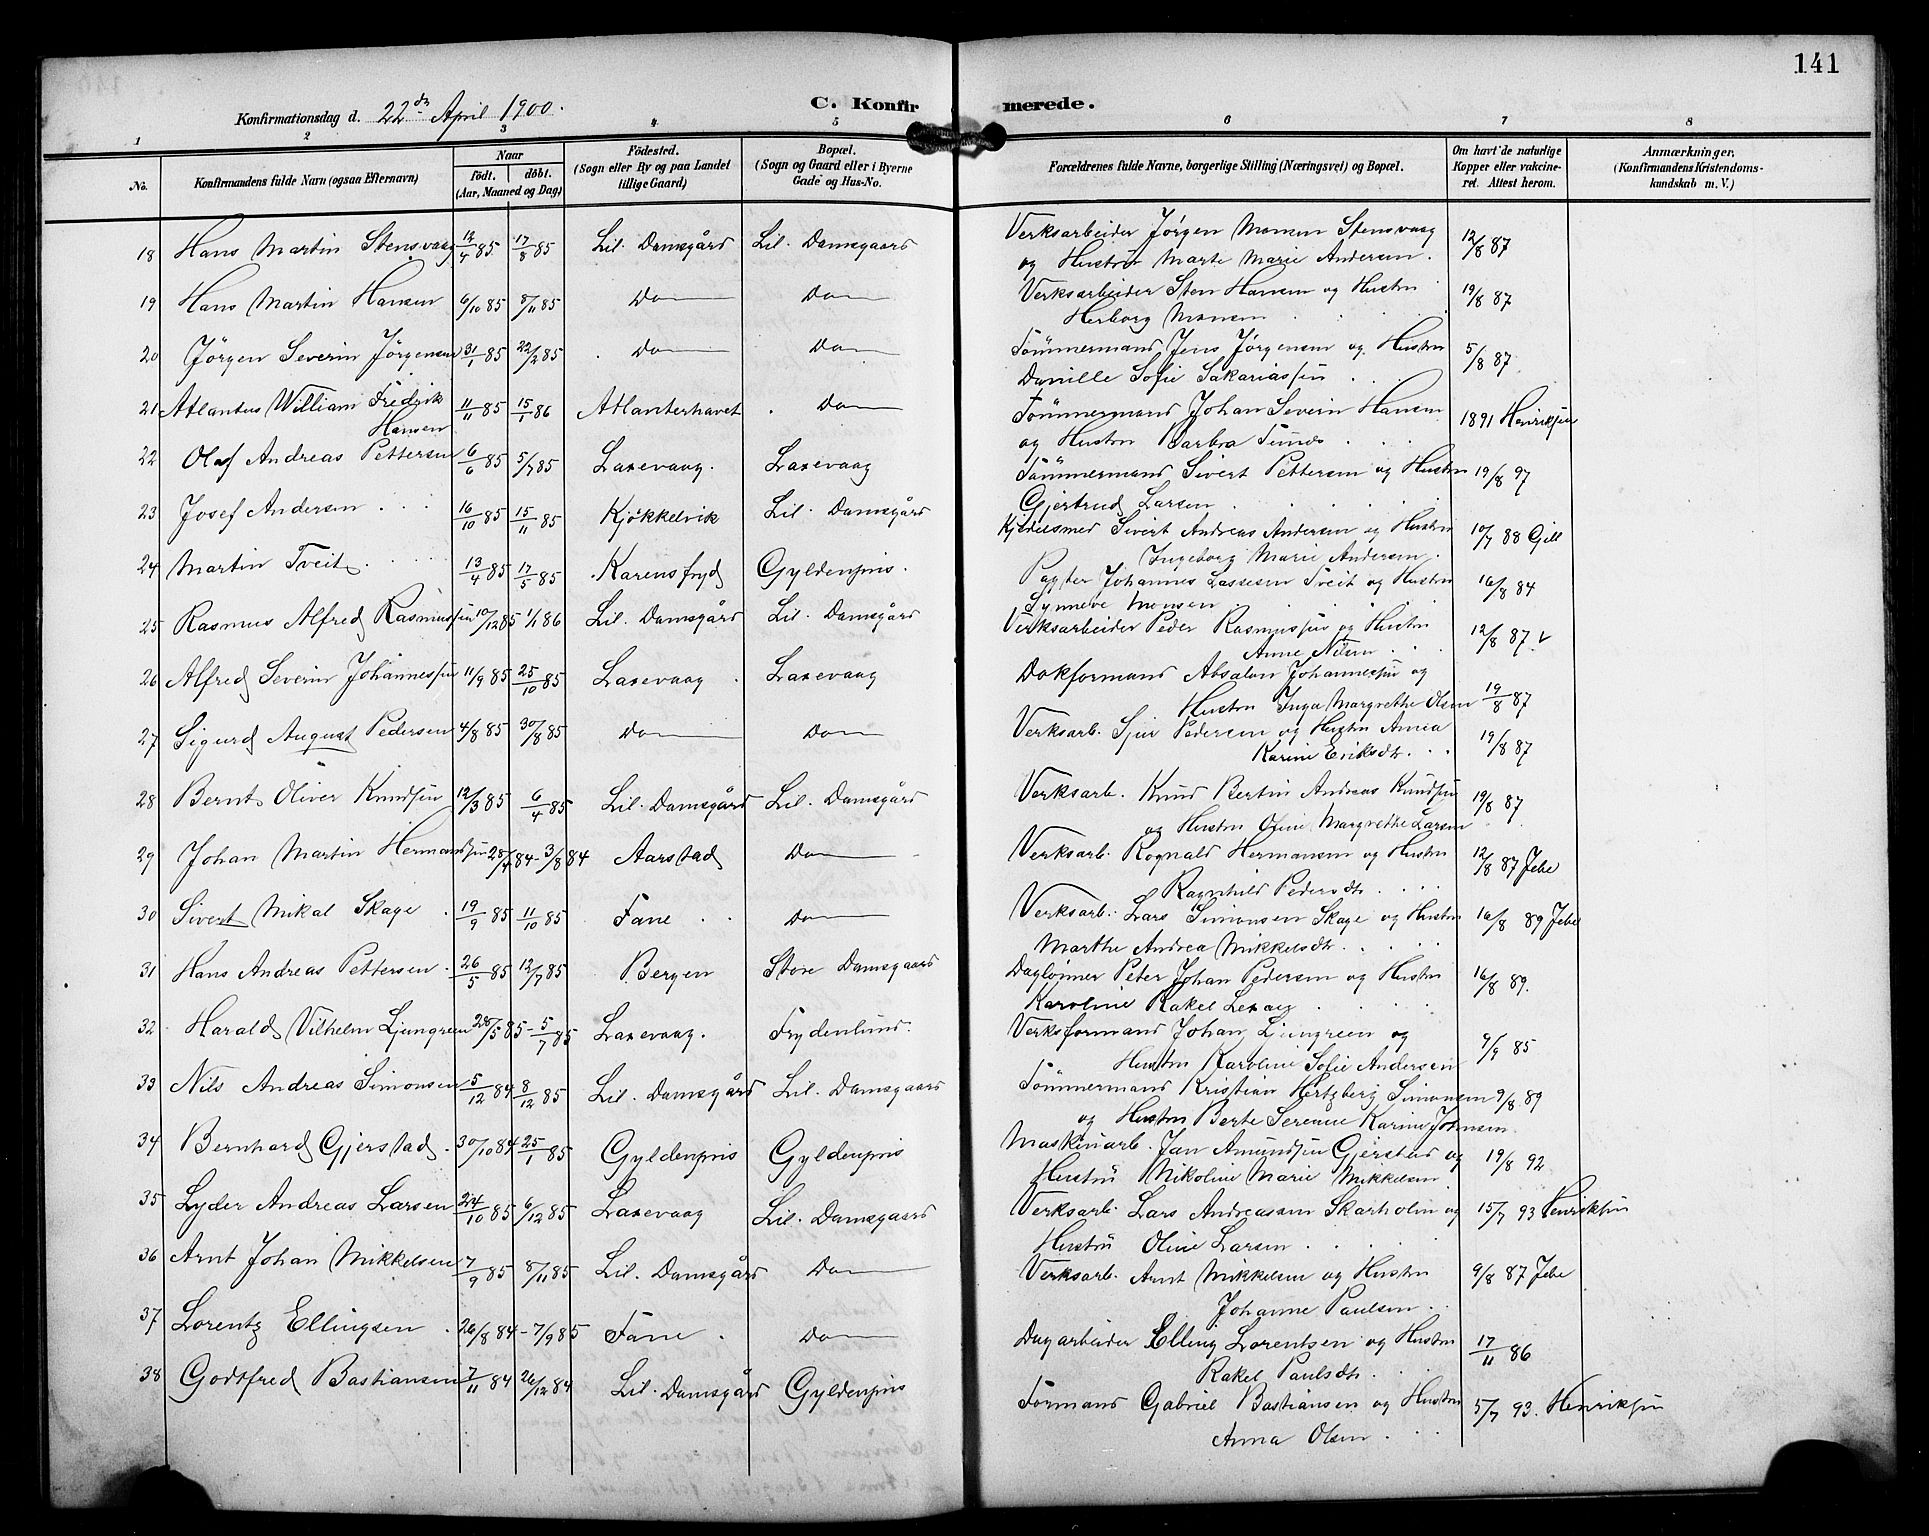 141
Konfirmationsdag d. 22de April 1900.
C. Konfirmerede.
1 2 3 4 5 6 7 8
No. Konfirmandens fulde Navn (ogsaa Efternavn) Naar födt. döbt. (Aar, Maaned og Dag) Födested. (Sogn eller By og paa Landet tillige Gaard) Bopæl. (Sogn og Gaard eller i Byerne Gade og Hus-No. Forældrenes fulde Navne, borgerlige Stilling (Næringsvei) og Bopæl. Om havt de naturlige Kopper eller vakcineret. Attest herom. Anmærkninger. (Konfirmandens Kristendomskundskab m. V.)
18 Hans Martin Stensvaag 14/4 85 17/8 85 Lil. Damsgård Lil. Damsgaard Verksarbeider Jörgen Monsen Stensvaag 12/8 87
og Hustru Marte Marie Andersen.
19 Hans Martin Hansen 6/10 85 8/11 85 Do Do Verksarbeider Sten Hansen og Hustru 19/8 87
Herborg Monsen
20 Jörgen Severin Jörgensen 31/1 85 22/2 85 Do Do Tömmermand Jens Jörgensen og Hustru 5/8 87
Danille Sofie Sakariassen
21 Atlantus William Fredrik 11/11 85 15/1 86 Atlanterhavet Do Tömmermand Johan Severin Hansen 1891 Henriksen
Hansen og Hustru Barbra
22 Olaf Andreas Pettersen 6/6 85 5/7 85 Laxevaag. Laxevaag Tömmermand Sivert Pettersen og Hustru 19/8 97
Gjertrud Larsen
23 Josef Andersen 16/10 85 15/11 85 Kjökkelvik Lil. Damsgård Kjedelsmed Sivert Andreas Andersen og Hustru 10/7 88 Gill
Ingeborg Marie Andersen.
24 Martin Tveit 13/4 85 17/5 85 Karensfryd Gyldenpris. Pagter Johannes Lassesen Tveit og Hustru 16/8 84
Synneve Monsen
25 Rasmus Alfred Rasmussen 10/12 85 1/1 86 Lil. Damsgård Lil. Damsgård Verksarbeider Peder Rasmussen og Hustru 12/8 87 v
Anne Nilsen
26 Alfred Severin Johannessen 11/9 85 25/10 85 Laxevaag Laxevaag Dokformand Absalon Johannessen og
Hustru Inga Margrethe Olsen 19/8 87
27 Sigurd August Pedersen 4/8 85 30/8 85 Do Do Verksarb. Sjur Pedersen og Hustru Anna 19/8 87
Karine Eriksdtr.
28 Bernt Oliver Knudsen 12/3 85 6/4 85 Lil. Damsgård Lil. Damsgård Verksarb. Knud Bertin Andreas Knudsen 19/8 87
og Hustru Oline Margrethe Larsen
29 Johan Martin Hermandsen 28/4 84 - 3/8 84 Aarstad Do Verksarb. Rognald Hermansen og Hustru 12/8 87 Jebe
Ragnhild Pedersdtr.
30 Sivert Mikal Skage 19/9 85 11/10 85 Fane Do Verksarb. Lars Simonsen Skage og Hustru 16/8 89 Jebe
Marthe Andrea Mikkelsdtr.
31 Hans Andreas Pettersen 26/5 85 12/7 85 Bergen Store Damsgaard Daglönner Peter Johan Pedersen og Hustru 16/8 89.
Karoline Rakel
32 Harald Vilhelm Ljungreen 28/5 85 - 5/7 85 Laxevaag. Frydenlund. Verksformand Johan Ljungreen og 9/9 85
Hustru Karoline Sofie Andersen
33 Nils Andreas Simonsen 5/12 84 8/12 85 Lil. Damsgård Lil. Damsgaard Tömmermand Kristian Hertzberg Simonsen 9/8 89
og Hustru Berte Serene Karine Johnsen.
34 Bernhard Gjerstad. 30/10 84 25/1 85 Gyldenpris Gyldenpris Maskinarb. Jan Amundsen Gjerstad og 19/8 92
Hustru Nikoline Marie Mikkelsen
35 Lyder Andreas Larsen 24/10 85 6/12 85 Laxevaag Lil. Damsgaard Verksarb. Lars Andreassen Skarholm og 15/7 93 Henriksen
Hustru Oline Larsen
36 Arnt Johan Mikkelsen 7/9 85 8/11 85 Lil. Damsgård Do Verksarb. Arnt Mikkelsen og Hustru 9/8 87 Jebe
Johanne Paulsen
37 Lorentz Ellingsen 26/8 84 - 7/9 85 Fane Do Dagarbeider Elling Lorentsen og Hustru 17/11 86
Rakel Paulsdtr.
38 Godtfred Bastiansen 7/11 84 26/12 84 Lil. Damsgård Gyldenpris Formand Gabriel Bastiansen og Hustru 5/7 93. Henriksen
Anna Olsen